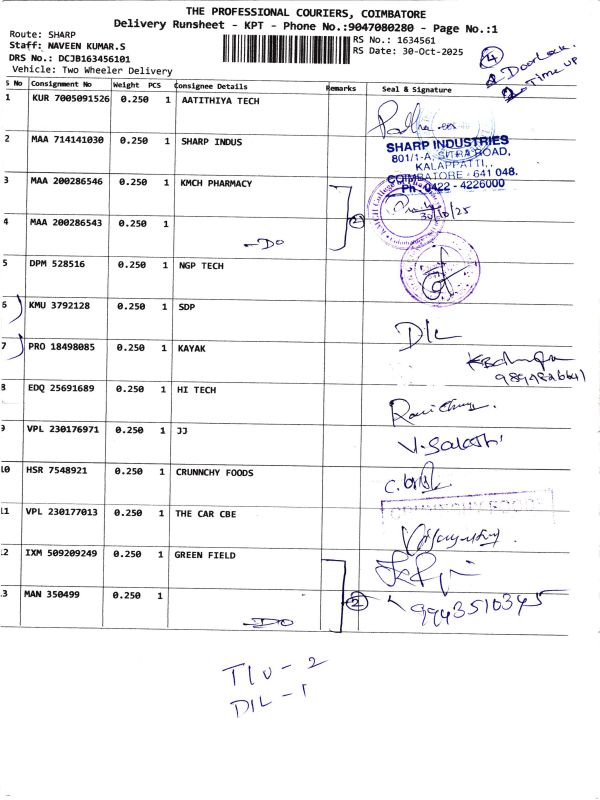 THE PROFESSIONAL COURIERS, COIMBATORE
Delivery Runsheet - KPT - Phone No.:9047080280 - Page No.:1
Route: SHARP
Staff: NAVEEN KUMAR.S
DRS No.: DCJB163456101
Vehicle: Two Wheeler Delivery
RS No.: 1634561
RS Date: 30-Oct-2025
4
Door Lock.
2 Time up
S No Consignment No Weight PCS Consignee Details Remarks Seal & Signature
1 KUR 7005091526 0.250 1 AATITHIYA TECH
2 MAA 714141030 0.250 1 SHARP INDUS
SHARP INDUSTRIES
801/1-A, SITRA ROAD,
KALAPPATTI,
COIMBATORE - 641 048.
PH : 0422 - 4226000
3 MAA 200286546 0.250 1 KMCH PHARMACY
2
30/10/25
4 MAA 200286543 0.250 1
-Do
5 DPM 528516 0.250 1 NGP TECH
6 KMU 3792128 0.250 1 SDP
D/L
7 PRO 18498085 0.250 1 KAYAK
8 EDQ 25691689 0.250 1 HI TECH
9 VPL 230176971 0.250 1 JJ
10 HSR 7548921 0.250 1 CRUNNCHY FOODS
CRUNNCHY FOODS
11 VPL 230177013 0.250 1 THE CAR CBE
12 IXM 509209249 0.250 1 GREEN FIELD
13 MAN 350499 0.250 1
2
9943510345
-Do
T/U - 2
D/L - 1